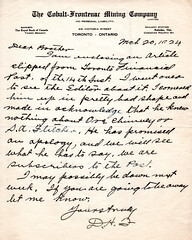 The Cobalt-Frontenac Mining Company
NO PERSONAL LIABILITY
TORONTO - ONTARIO
Mch 20, 1934
Dear Brother
I am enclosing an Article
clipped from Toronto Financial
Post, of the 14th Inst. I went over
to see the Editor about it. I cornered
him up so pretty bad shape and
made him acknowledge that he knew
nothing about Ore Chimney or
S.A. Fletcher. He has promised
an apology, and we will see
what he has to say, we are
subscribers to the Post.
I may possibly be down next
week, If you are going to be away
let me know.
Yours truly